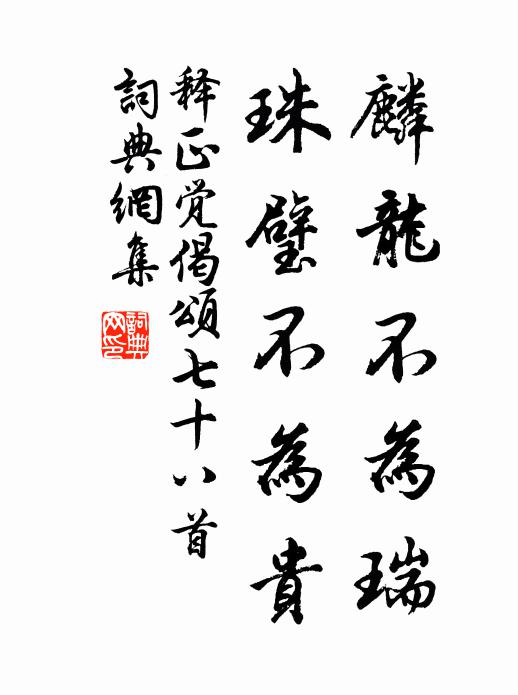 麟龍不為瑞
珠璧不為貴
释正觉偈頌七十八首
詞典網集
詞典网印